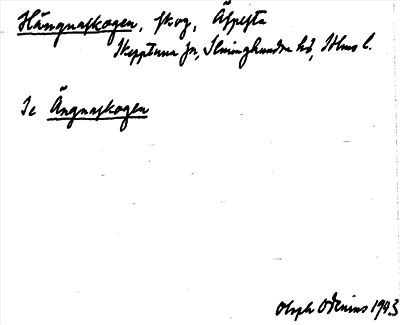 Hängnaskogen, skog, Äspesta
Skepptuna sn, Seminghundra hd, Sthms l.
Se Ängnaskogen
Olof Odenius 1943